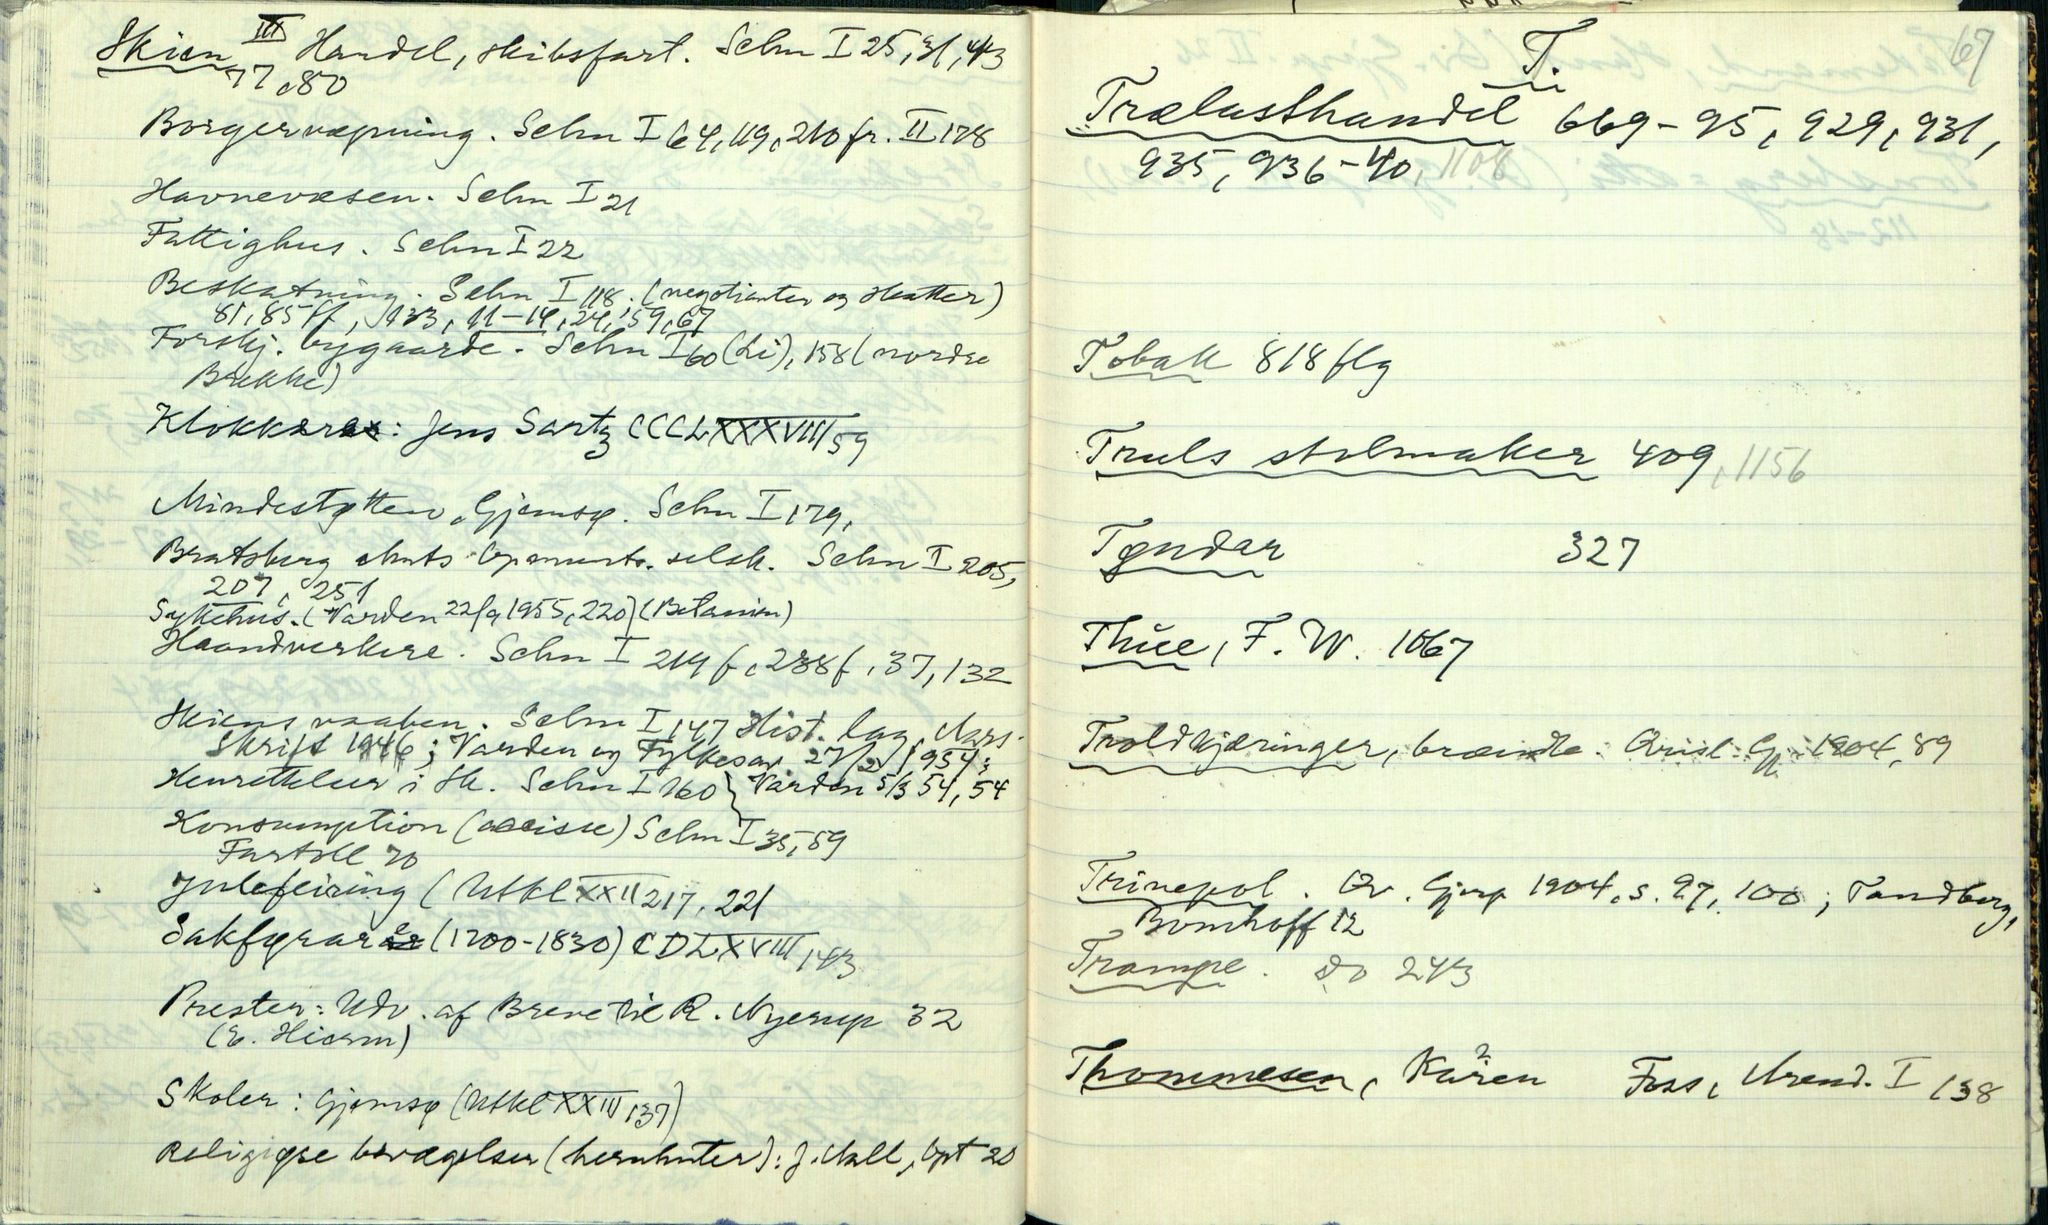 Skien III Handel, skibsfart. Schn I 25, 31, 443
77, 80
Borgervæpning. Schn I 64, 119, 210 fr. II 178
Havnevæsen. Schn I 21
Fattighus. Schn I 22
Beskatning. Schn I 118. (negotianter og skatter)
81, 85 ff, 133, 11-14, 24, 59, 67
Forskj. bygaarde. Schn I 60 (Li), 158 (nordre
Brekke)
Klokkere: Jens Sartz CCCLXXXVIII 59
Mindestøtten, Gjemsø. Schn I 179,
Bratsberg amts opmunts. selsk. Schn I 205,
207, 251
Sykehus. (Varden 22/9 1955, 220) (Betanien)
Haandverkere. Schn I 214 f, 238 f, 37, 132
Skiens vaaben. Schn I 147 Hist. lag, Aars-
skrift 1946; Varden og Fylkesav. 27/2 1954;
Henrettelser i Sk. Schn I 160 } Varden 5/3 54, 54
Konsumption (accisse) Schn I 35, 59
Fartoll 70
Julefeiring (Utkl XXII 217, 221
Sakførarar (1700-1830) CDLXVIII 143
Prester: Udv. af Breve til R. Nyerup 32
(E. Hiorm)
Skoler: Gjemsø (Utkl XXIII 137)
Religiøse bevægelser (hernhuter): J. Aall, Opt 20
67
T.
Trælasthandel 669-95, 929, 931,
935, 936-40, 1108
Tobak 818 flg
Truls stolmaker 409, 1156
Tyndar 327
Thue, F. W. 1067
Troldkjæringer, brændte. Qvisl. Gjp. 1904, 89
Trinepol. Qv. Gjerp 1904, s. 97, 100; Tandberg,
Bomhoff 12
Trampe. do 243
Thommesen, Karen Foss, Arend. I 138